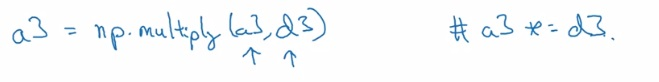 a3 = np.multiply(a3, d3) # a3 *= d3.